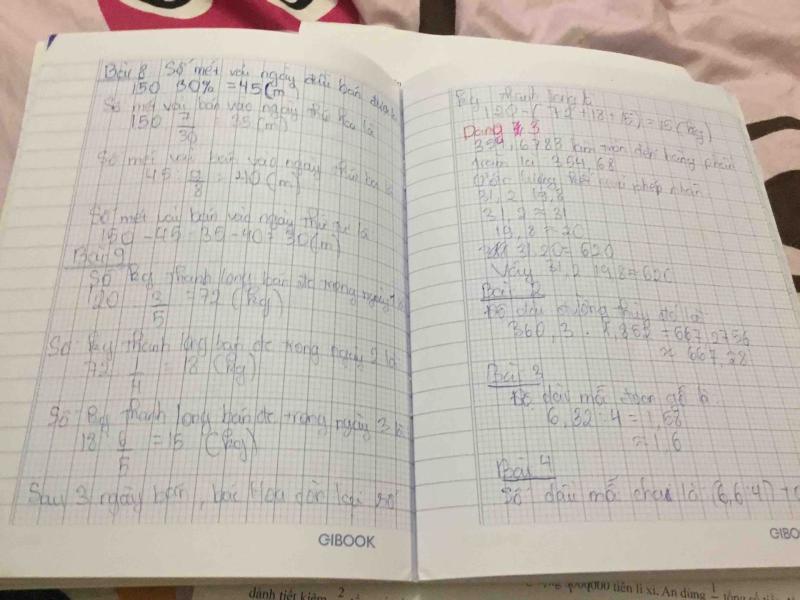 Bài 8 Số mét vải ngày đầu bán được
150 30% = 45 (m)
Số mét vải bán vào ngày thứ hai là
150 7/30 35 (m)
Số mét vải bán vào ngày thứ ba là
45 8/9 = 40 (m)
Số mét vải bán vào ngày thứ tư là
150 - 45 - 35 - 40 = 30 (m)
Bài 9
Số kg thanh long bán đc trong ngày 1 là
120 3/5 = 72 (kg)
Số kg thanh long bán đc trong ngày 2 là
72 1/4 = 18 (kg)
Số kg thanh long bán đc trong ngày 3 là
18 = 15 (kg)
Sau 3 ngày bán, bác Hoa còn lại số
GIBOOK
kg thanh long là
120 - (72 + 18 + 15) = 15 (kg)
Dạng 3
354,6783 làm tròn đến hàng phần
trăm là 354,68
Ước lượng kết quả phép nhân
31,2 19,8
31,2 ≈ 31
19,8 ≈ 20
31.20 = 620
Vậy 31,2 19,8 ≈ 620
Bài 2
Độ dài đường thủy đó là
360,3 . 1,852 = 667,2756
≈ 667,28
Bài 3
Độ dài mỗi đoạn gỗ là
6,32 : 4 = 1,58
≈ 1,6
Bài 4
Số dầu mỗi chai là (6,6:4)
GIBOO
dành tiết kiệm, 2
000 tiền lì xì. An dùng 1